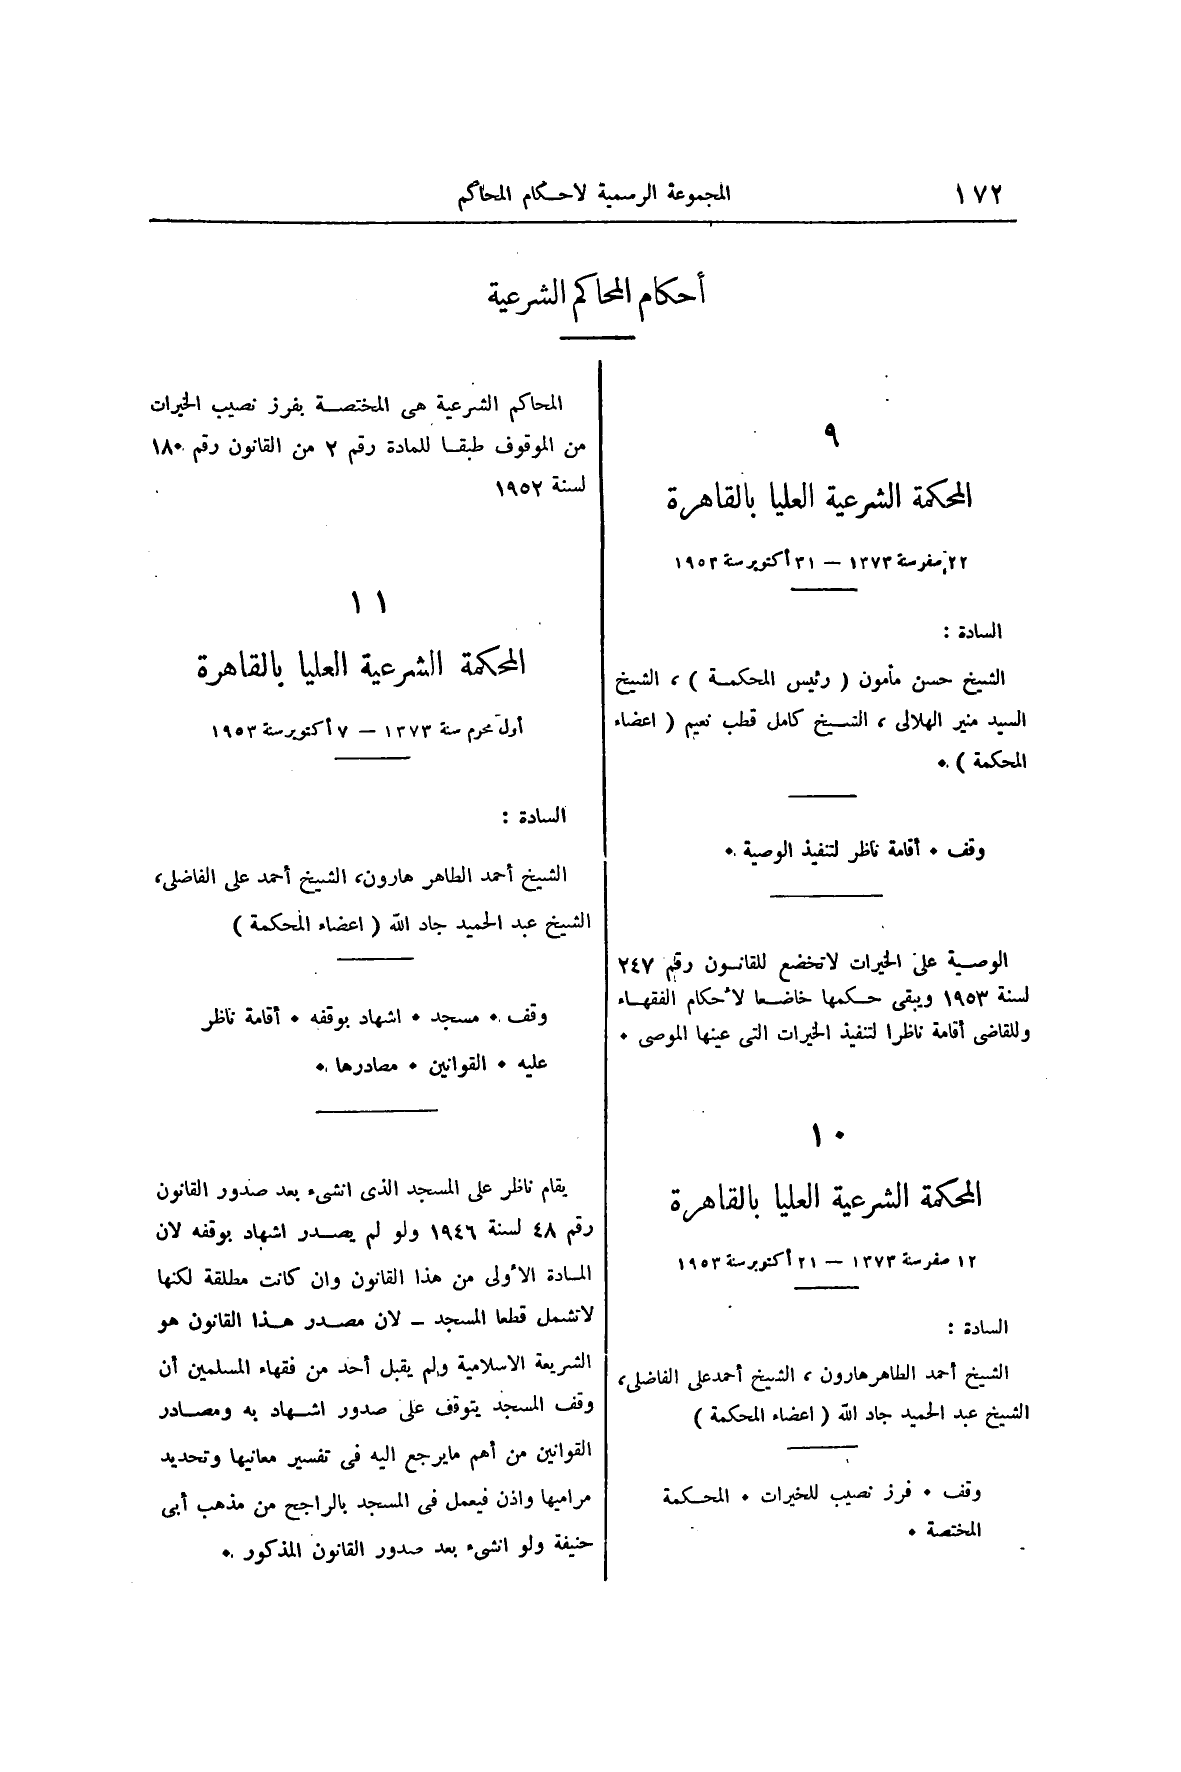 ١٧٢
المجموعة الرسمية لاحكام المحاكم
أحكام المحاكم الشرعية
٩
المحكمة الشرعية العليا بالقاهرة
٢٢ صفر سنة ١٣٧٣ — ٣١ أكتوبر سنة ١٩٥٣
السادة :
الشيخ حسن مأمون ( رئيس المحكمة ) ، الشيخ
السيد منير الهلالى ، الشيخ كامل قطب نعيم ( اعضاء
المحكمة ) .
وقف . أقامة ناظر لتنفيذ الوصية .
الوصية على الخيرات لاتخضع للقانون رقم ٢٤٧
لسنة ١٩٥٣ ويبقى حكمها خاضعا لأحكام الفقهاء
وللقاضى أقامة ناظرا لتنفيذ الخيرات التى عينها الموصى .
١٠
المحكمة الشرعية العليا بالقاهرة
١٢ صفر سنة ١٣٧٣ — ٢١ أكتوبر سنة ١٩٥٣
السادة :
الشيخ أحمد الطاهر هارون ، الشيخ أحمد على الفاضلى ،
الشيخ عبد الحميد جاد الله ( اعضاء المحكمة )
وقف . فرز نصيب للخيرات . المحكمة
المختصة .
المحاكم الشرعية هى المختصة بفرز نصيب الخيرات
من الموقوف طبقا للمادة رقم ٢ من القانون رقم ١٨٠
لسنة ١٩٥٢
١١
المحكمة الشرعية العليا بالقاهرة
أول محرم سنة ١٣٧٣ — ٧ أكتوبر سنة ١٩٥٣
السادة :
الشيخ أحمد الطاهر هارون، الشيخ أحمد على الفاضلى،
الشيخ عبد الحميد جاد الله ( اعضاء المحكمة )
وقف . مسجد . اشهاد بوقفه . أقامة ناظر
عليه . القوانين . مصادرها .
يقام ناظر على المسجد الذى انشىء بعد صدور القانون
رقم ٤٨ لسنة ١٩٤٦ ولو لم يصدر اشهاد بوقفه لان
المادة الأولى من هذا القانون وان كانت مطلقة لكنها
لاتشمل قطعا المسجد — لان مصدر هذا القانون هو
الشريعة الاسلامية ولم يقبل أحد من فقهاء المسلمين أن
وقف المسجد يتوقف على صدور اشهاد به ومصادر
القوانين من أهم مايرجع اليه فى تفسير معانيها وتحديد
مراميها واذن فيعمل فى المسجد بالراجح من مذهب أبى
حنيفة ولو انشىء بعد صدور القانون المذكور .